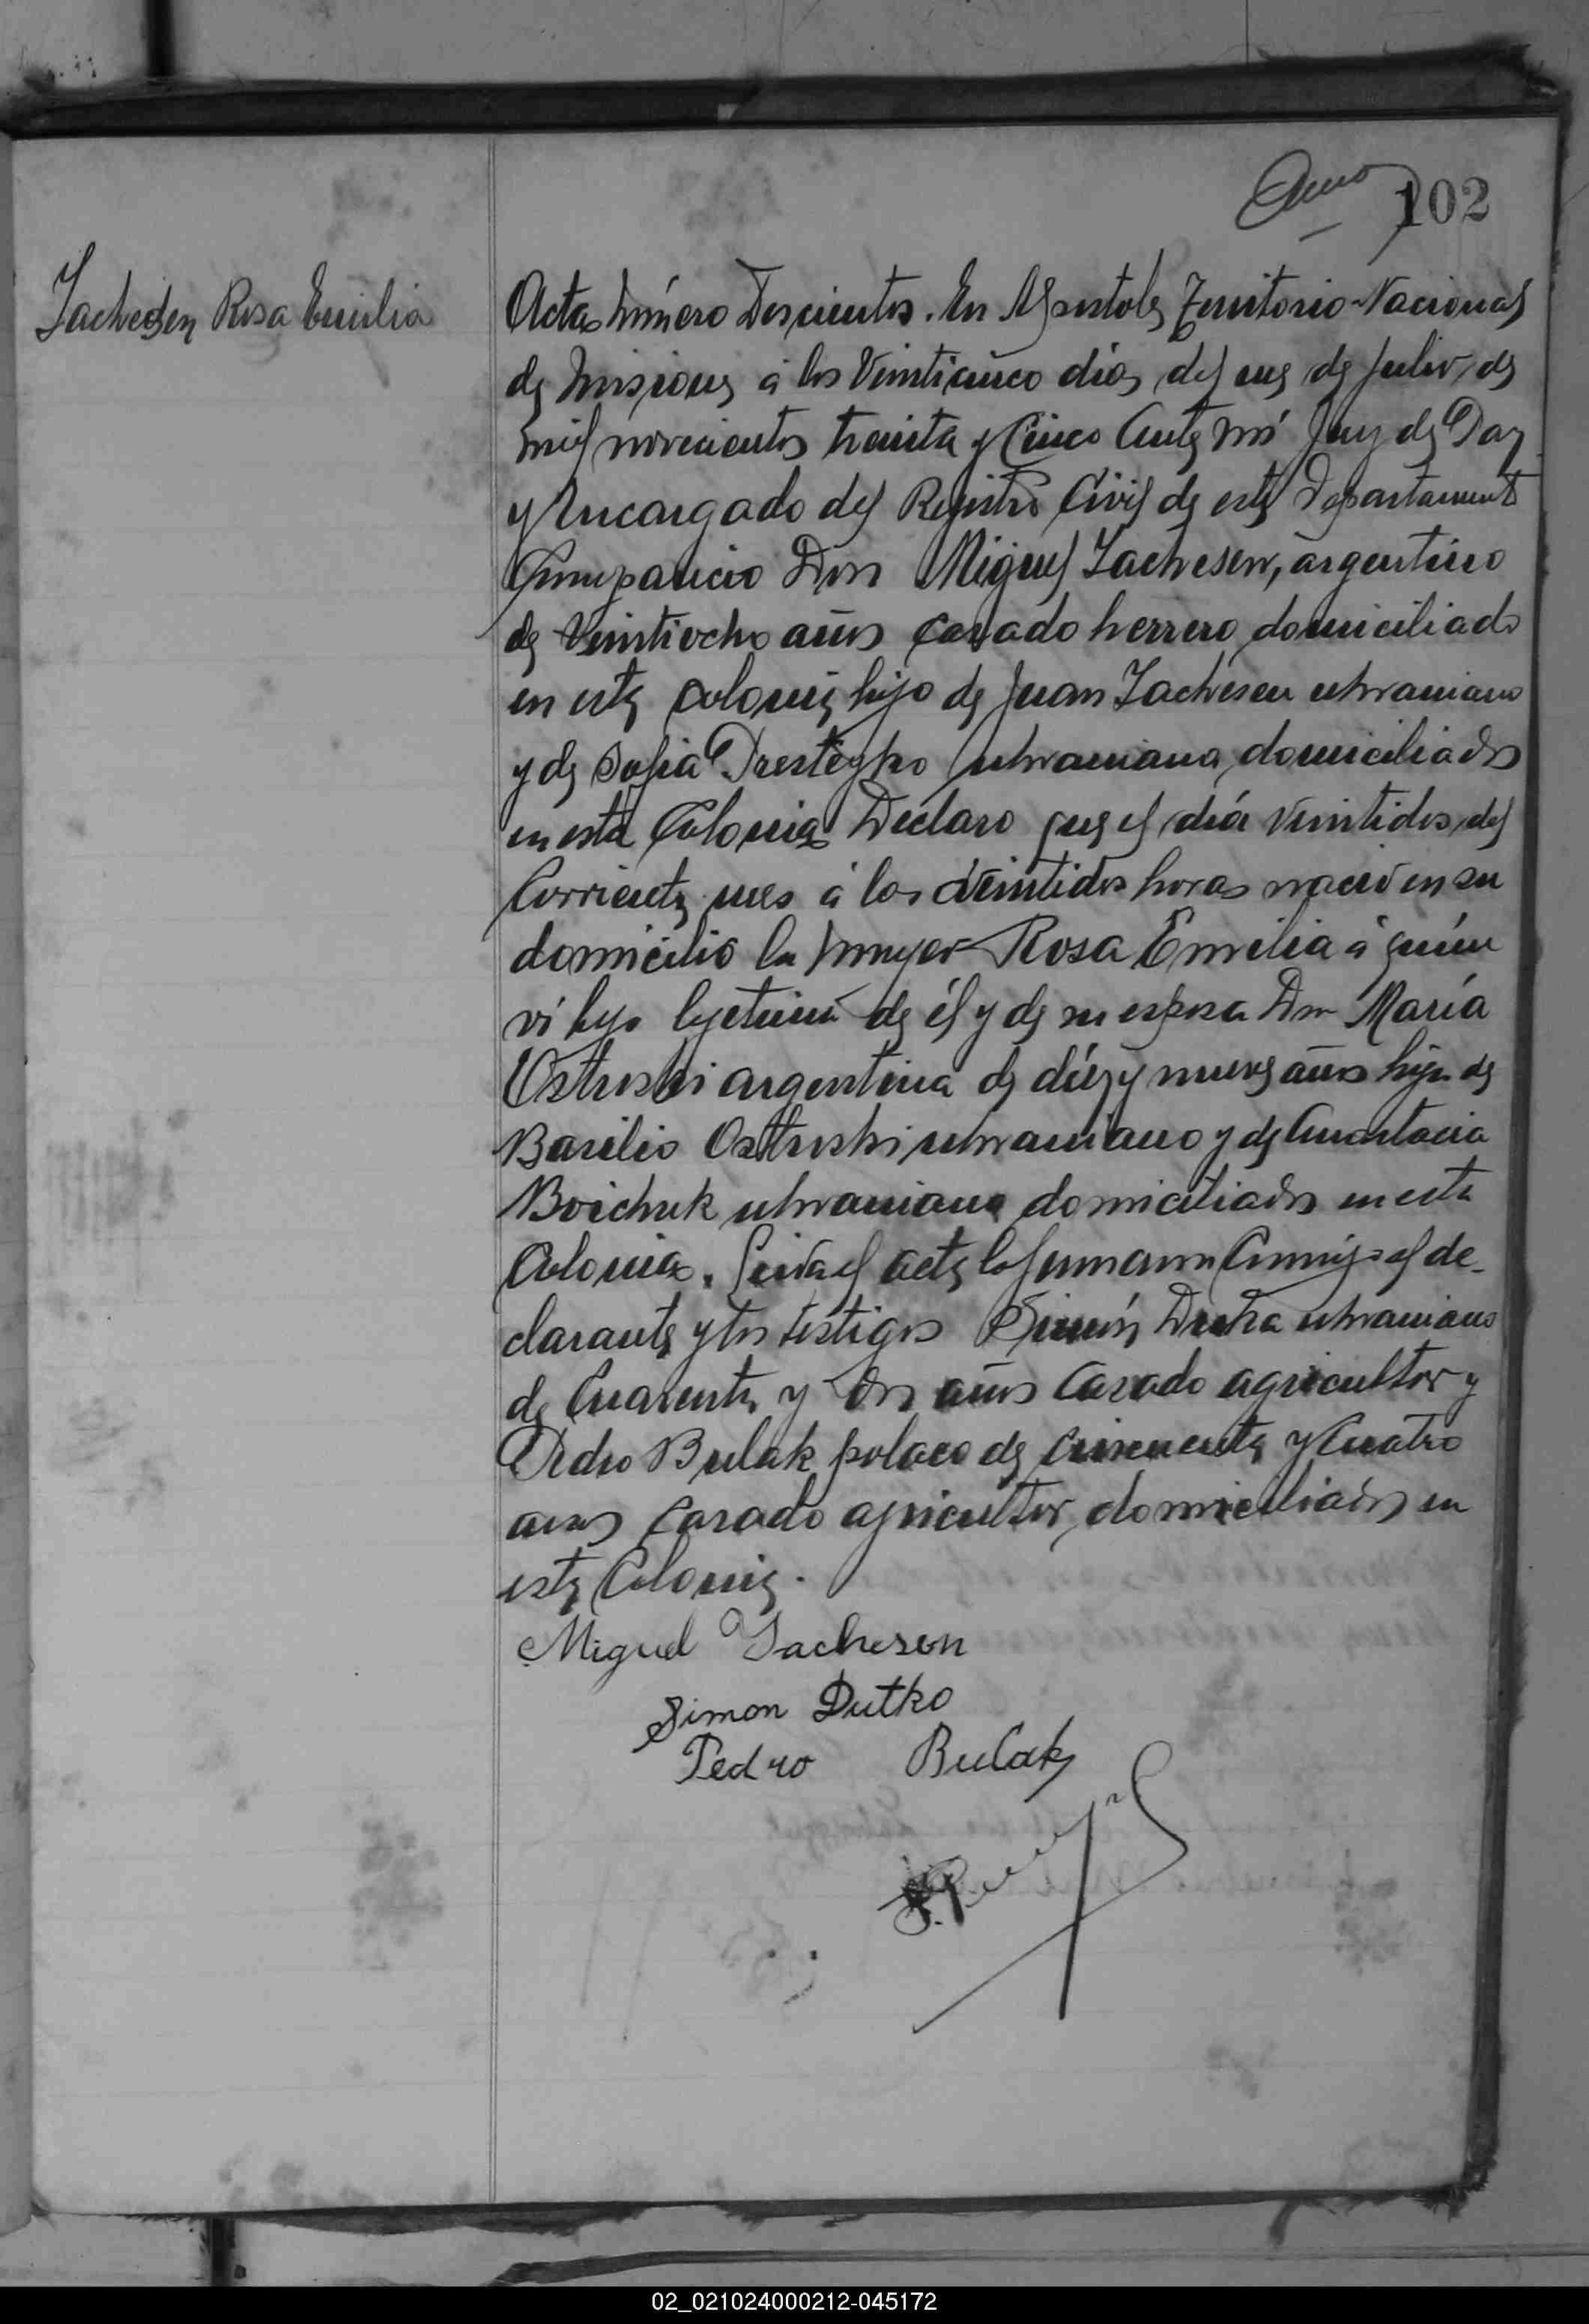 102
Jachesen Rosa Emilia
Acta número Doscientos. En Apostoles Territorio Nacional
de Misiones á los Veinticinco días del mes de Julio de
mil novecientos treinta y Cinco Ante mí Juez de Paz
y Encargado del Registro Civil de este Departamento
Compareció Don Miguel Jachesen, argentino
de Veintiocho años casado herrero domiciliado
en esta colonia hijo de Juan Jachesen ukraniano
y de Sofia ukraniana domiciliados
en esta Colonia Declaro que el día veintidos del
Corriente mes á las veintidos horas nació en su
domicilio la mujer Rosa Emilia á quien
ví hija lejetima de él y de su esposa Dña María
Ostroski argentina de diez y nueve años hija de
Basilio Ostroski ukraniano y de Anastacia
Boichuk ukraniana domiciliados en esta
Colonia. Leida el acta la firmaron Conmigo el de-
clarante y los testigos Simón Dutka ukraniano
de Cuarenta y dos años Casado agricultor y
Pedro Bulak polaco de cincuenta y Cuatro
años Casado agricultor domiciliados en
esta Colonia.
Miguel Jachesen
Simon Dutko
Pedro Bulak
02_021024000212-045172